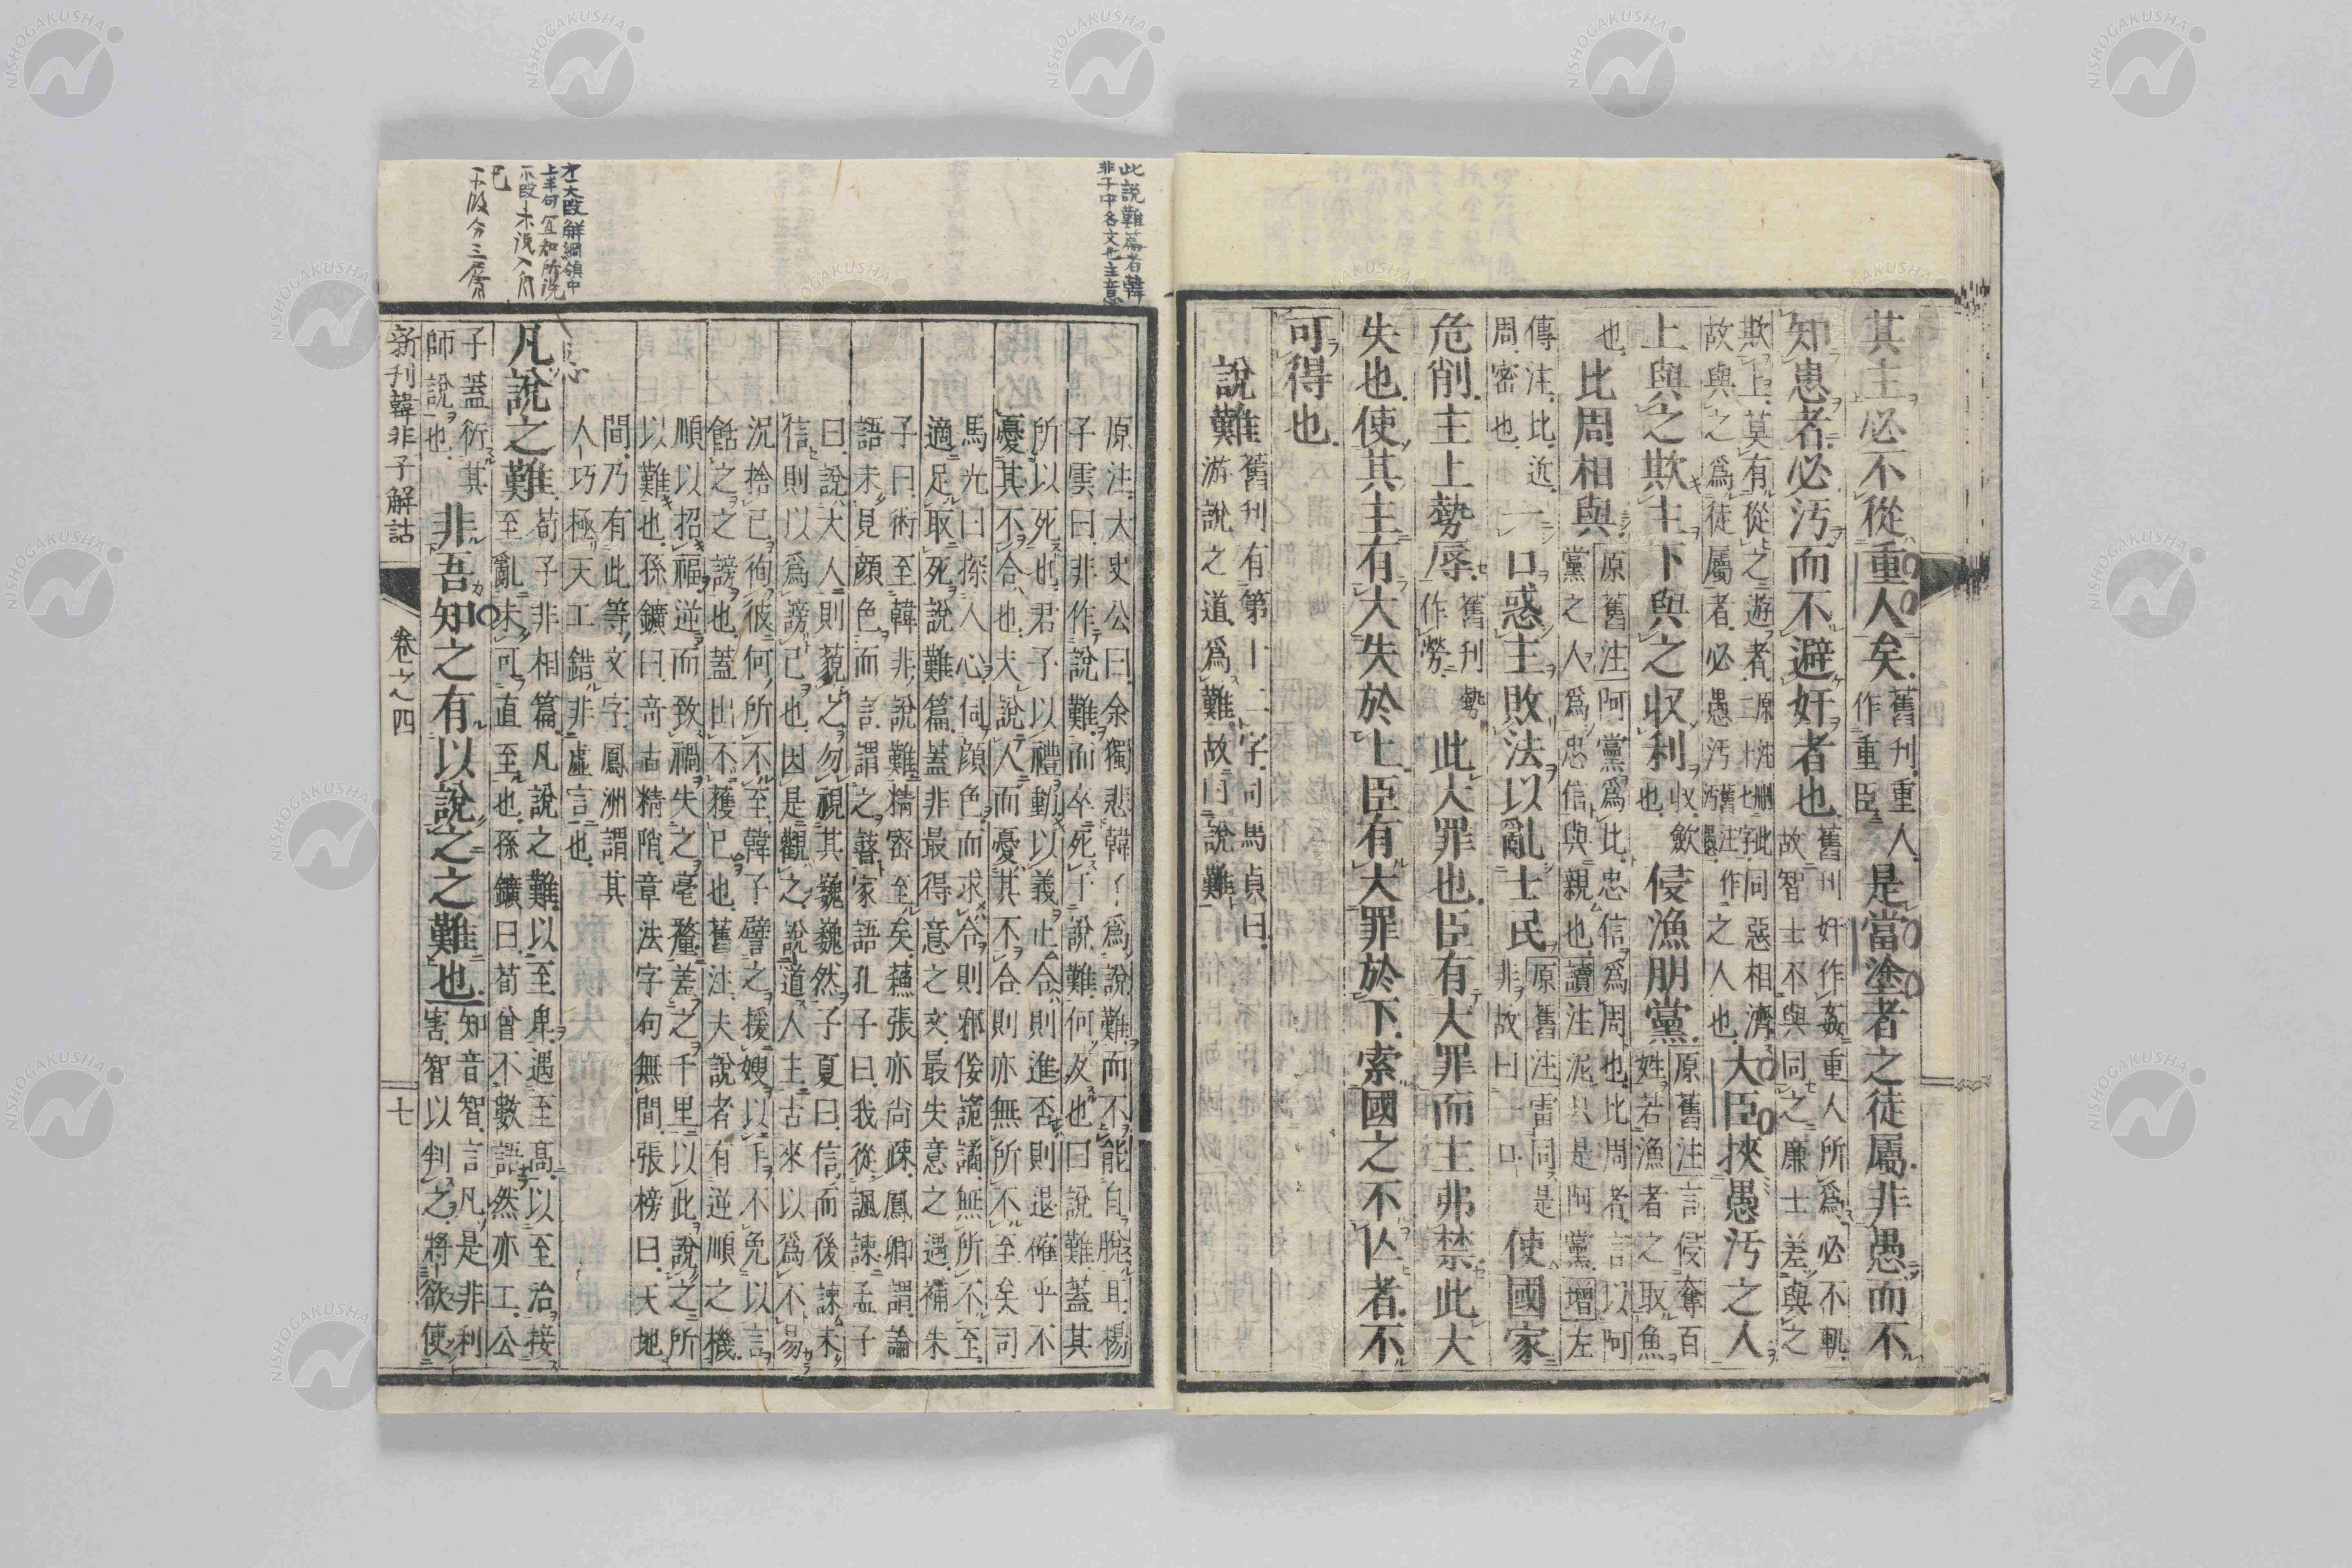 其主必不從重人矣舊刊重人作重臣是當塗者之徒屬非愚而不
知患者必汚而不避奸者也舊刊奸作姦重人所爲必不軌故智士不與同之廉士差與之
欺上莫有從之遊者同惡相濟故與之爲徒屬者必愚汚之人也大臣挾愚汚之人
上與之欺主下與之收利收斂也侵漁朋黨原舊注言侵奪百姓若漁者之取魚
也比周相與原舊注阿黨爲比忠信爲周也比周者言以阿黨之人爲忠信與親也讀注泥只是阿黨增左
傳注比近周密也一口惑主敗法以亂士民原舊注雷同是非故曰一口使國家
危削主上勢辱舊刊勢作勞此大罪也臣有大罪而主弗禁此大
失也使其主有大失於上臣有大罪於下索國之不亾者不
可得也
說難舊刊有第十二字司馬貞曰游說之道爲難故曰說難
此説難篇者韓
非子中名文也主意
原注大史公曰余獨悲韓子爲說難而不能自脫耳楊
子雲曰非作說難而卒死于說難何及也曰說難蓋其
所以死也君子以禮動以義止合則進否則退確乎不
憂其不合也夫說人而憂其不合則亦無所不至矣司
馬光曰探人心伺顔色而求合則邪佞詭譎無所不至
適足取死說難篇蓋非最得意之文最失意之遇補朱
子曰術至韓非說難精密至矣蘇張亦尚疎鳳卿謂論
語未見顔色而言謂之瞽家語孔子曰我從諷諫孟子
曰說大人則藐之勿視其巍巍然子夏曰信而後諫未
信則以爲謗己也因是觀之說道人主古來以爲不易
況捨己徇彼何所不至韓子譬之援嫂以手不免以言
餂之之謗也蓋出不獲已也舊注夫說者有逆順之機
順以招福逆而致禍失之毫釐差之千里以此說之所
以難也孫鑛曰奇古精陗章法字句無間張榜曰天地
間乃有此等文字鳳洲謂其
人巧極天工錯非虛言也
才一大段解綱領中
上半句宜知所説
凡說之難荀子非相篇凡說之難以至卑遇至高以至治接至亂未可直至也孫鑛曰荀曾不數語然亦工公
子蓋衍其師說也非吾知之有以說之之難也知音智言凡是非利害智以判之將欲使
新刊韓非子解詁 卷之四 七